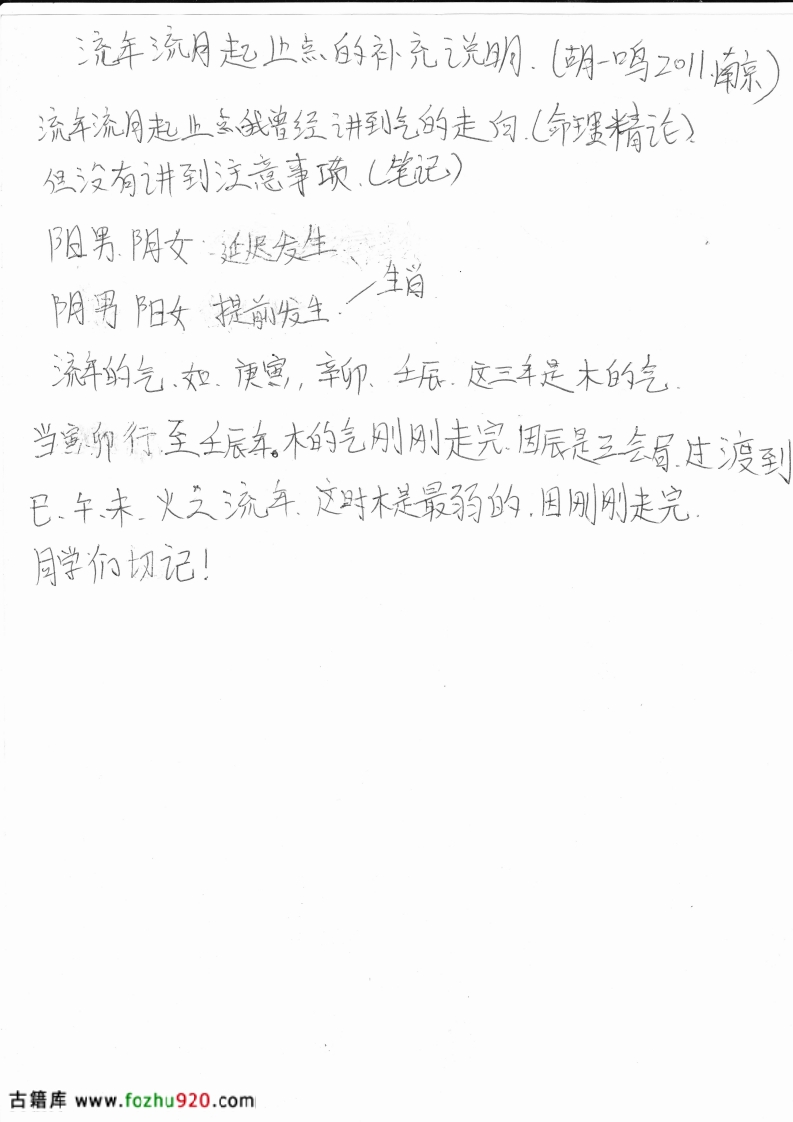 流年流月起止点的补充说明.(胡一鸣2011.南京)
流年流月起止点我曾经讲到气的走向.(命理精论)、
但没有讲到注意事项.(笔记)
阳男.阴女 延迟发生.
生肖
阴男 阳女 提前发生.
流年的气、如、庚寅, 辛卯、壬辰. 这三年是木的气.
当寅.卯行.至壬辰年。木的气刚刚走完.因辰是三会局.过渡到
巳、午、未. 火之流年. 这时木是最弱的.因刚刚走完.
同学们切记!
古籍库 www.fozhu920.com